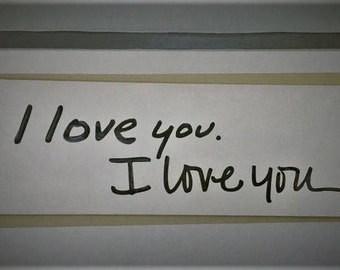 I love you.
I love you